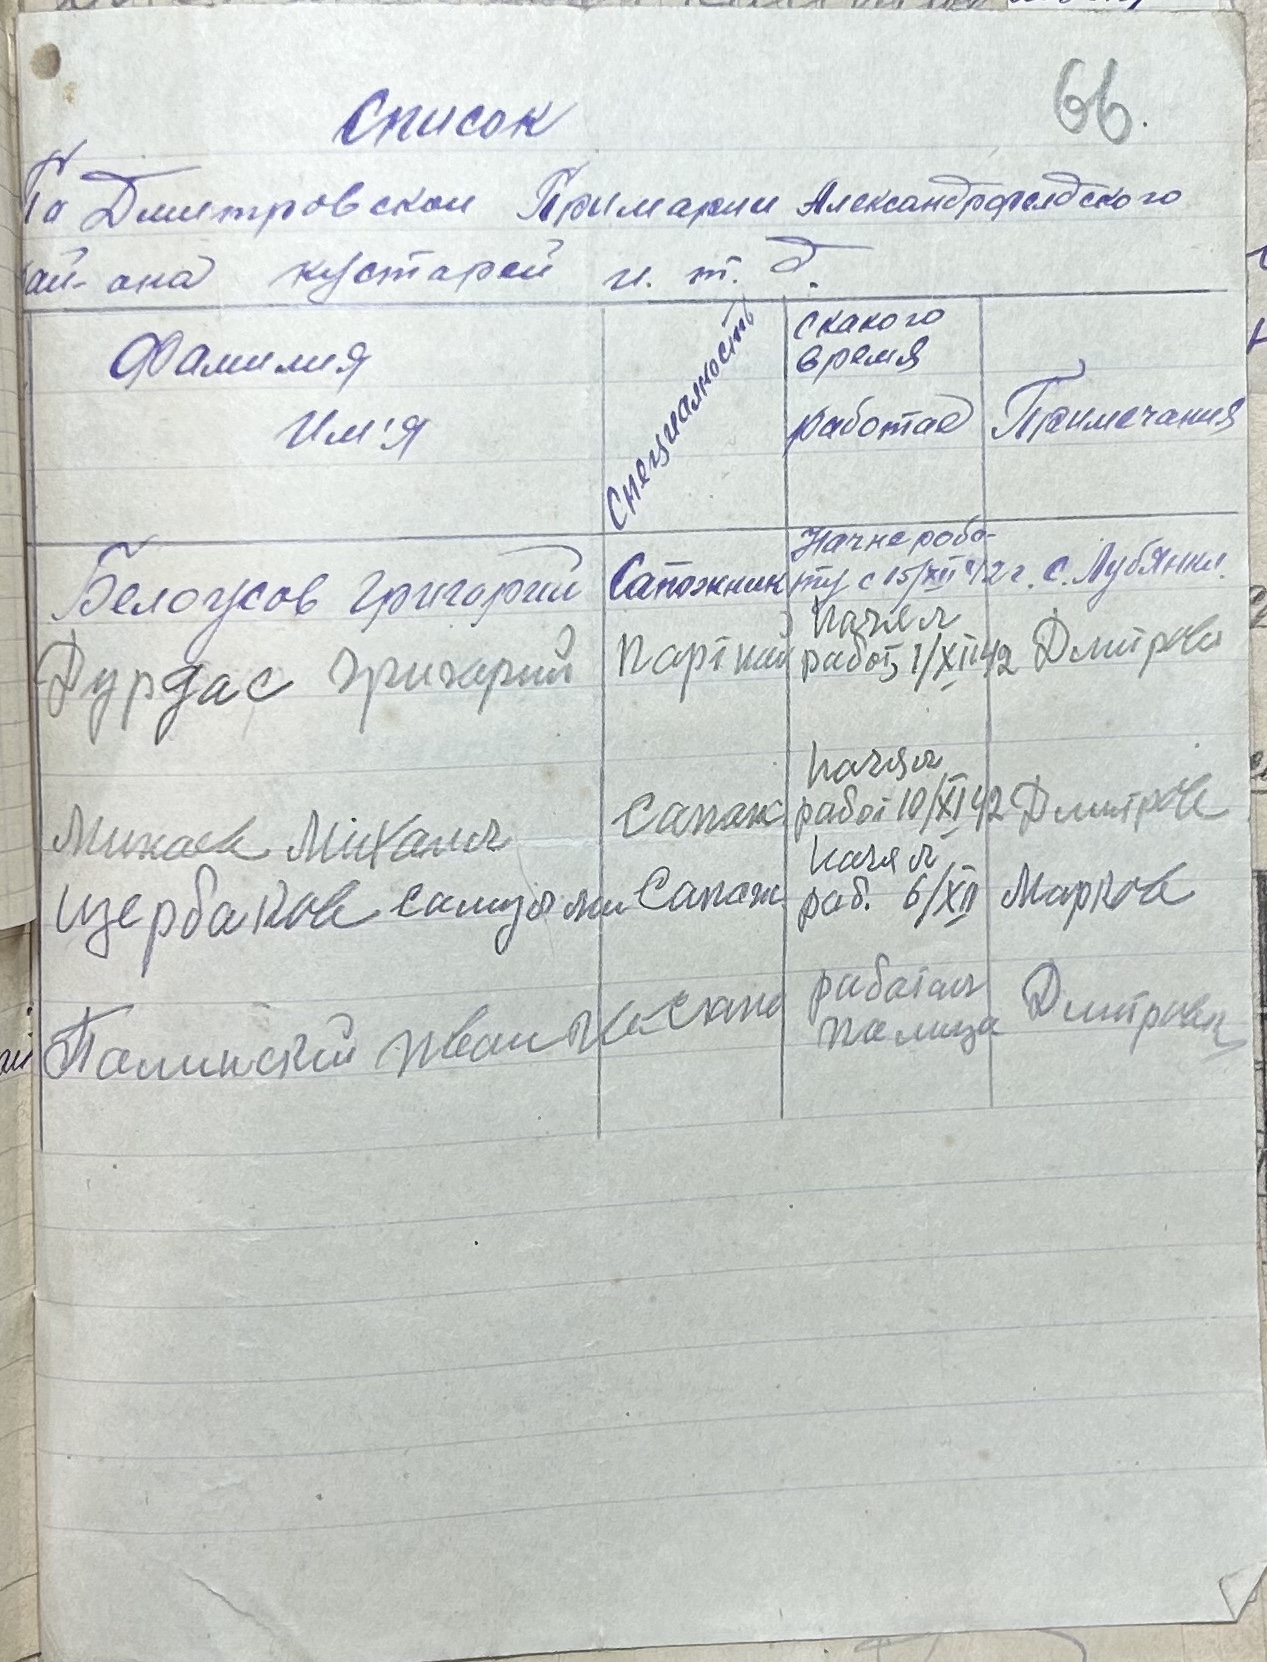 66.
Список
По Дмитровскои Примарии Александрофелдского
рай-она кустарей и. т. д.
Фамилия Им'я
Специалность
скакого время работае
Примечания
Белоусов Григорий Сапожник Начне робо-ту с 15/XII 42 г. с. Лубянки.
Дурдас Григорий Портной Начял работ 1/XII 42 Дмитровк
Михаил Сапож Начял работ 10/XI 42 Дмитровк
Щербаков Сапож Начял раб. 6/XII Марков
Иван работал Дмитровк